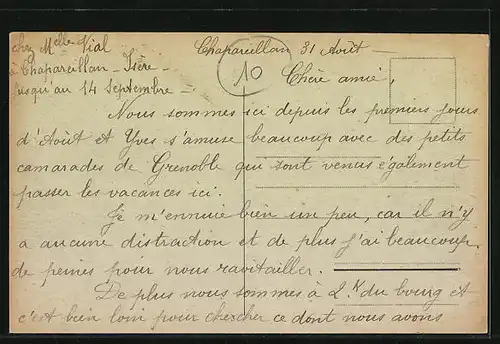 chez Melle Vial
à Chapareillan - Isère -
jusqu'au 14 Septembre -
Chapareillan 31 Août -
10
Chère amie,
Nous sommes ici depuis les premiers jours
d'Août et Yves s'amuse beaucoup avec des petits
camarades de Grenoble qui sont venus également
passer les vacances ici.
Je m'ennuie bien un peu, car il n'y
a aucune distraction et de plus j'ai beaucoup
de peines pour nous ravitailler.
De plus nous sommes à 2 K du bourg et
c'est bien loin pour chercher ce dont nous avons